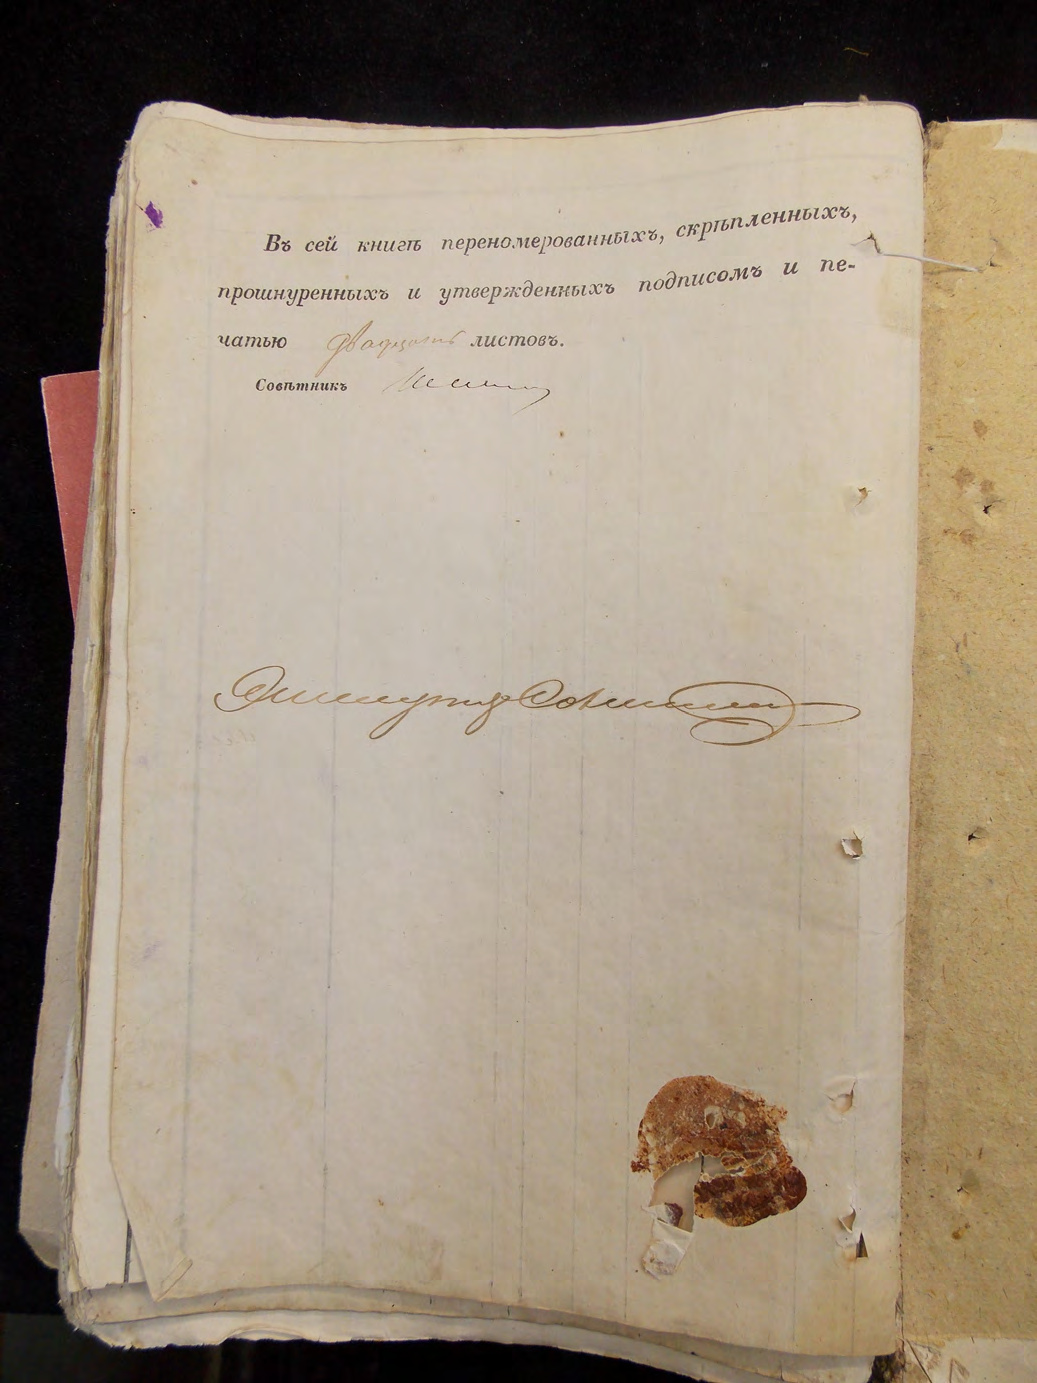 Въ сей книгѣ переномерованныхъ, скрѣпленныхъ,
прошнуренныхъ и утвержденныхъ подписомъ и пе-
чатью двадцать листовъ.
Совѣтникъ